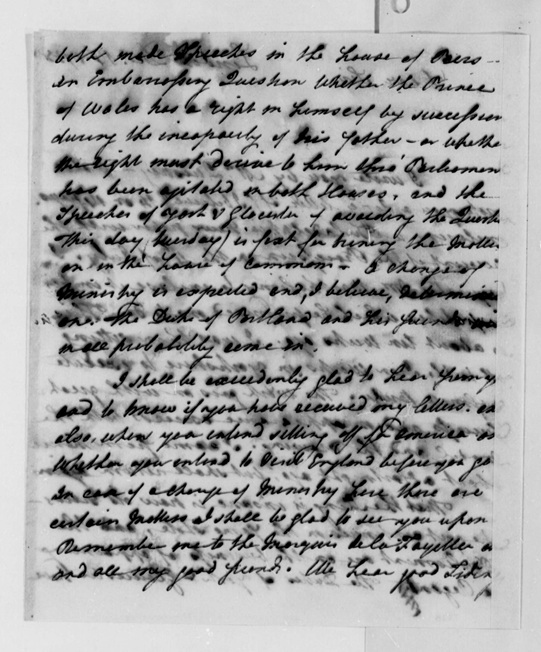 both made Speeches in the House of Peers —
an Embarrassing Question Whether the Prince
of Wales has a right in himself by succession
during the incapacity of his father – or whethe
the right must derive to him thro' Parliamen
has been agitated in both Houses, and the
Speeches of York & Glocester of avoiding the Questi
This day (tuesday) is fixt for bringing the Matter
on in the house of Commons – a change of
Ministry is expected and, I believe, determined
on. The Duke of Portland and his friends will
in all probability come in.
I shall be exceedingly glad to hear from y
and to know if you have received my letters. an
also, when you intend setting off for America or
Whether you intend to visit England before you go
In case of a change of Ministry here there are
certain Matters I shall be glad to see you upon
Remember me to the Marquis de la Fayette
and all my good friends. We hear good Tidin